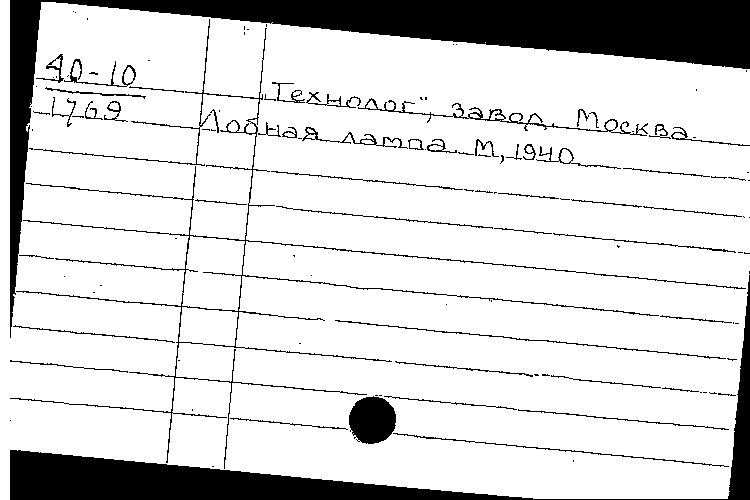 40-10
1769
„Технолог", завод. Москва.
Лобная лампа. М, 1940.